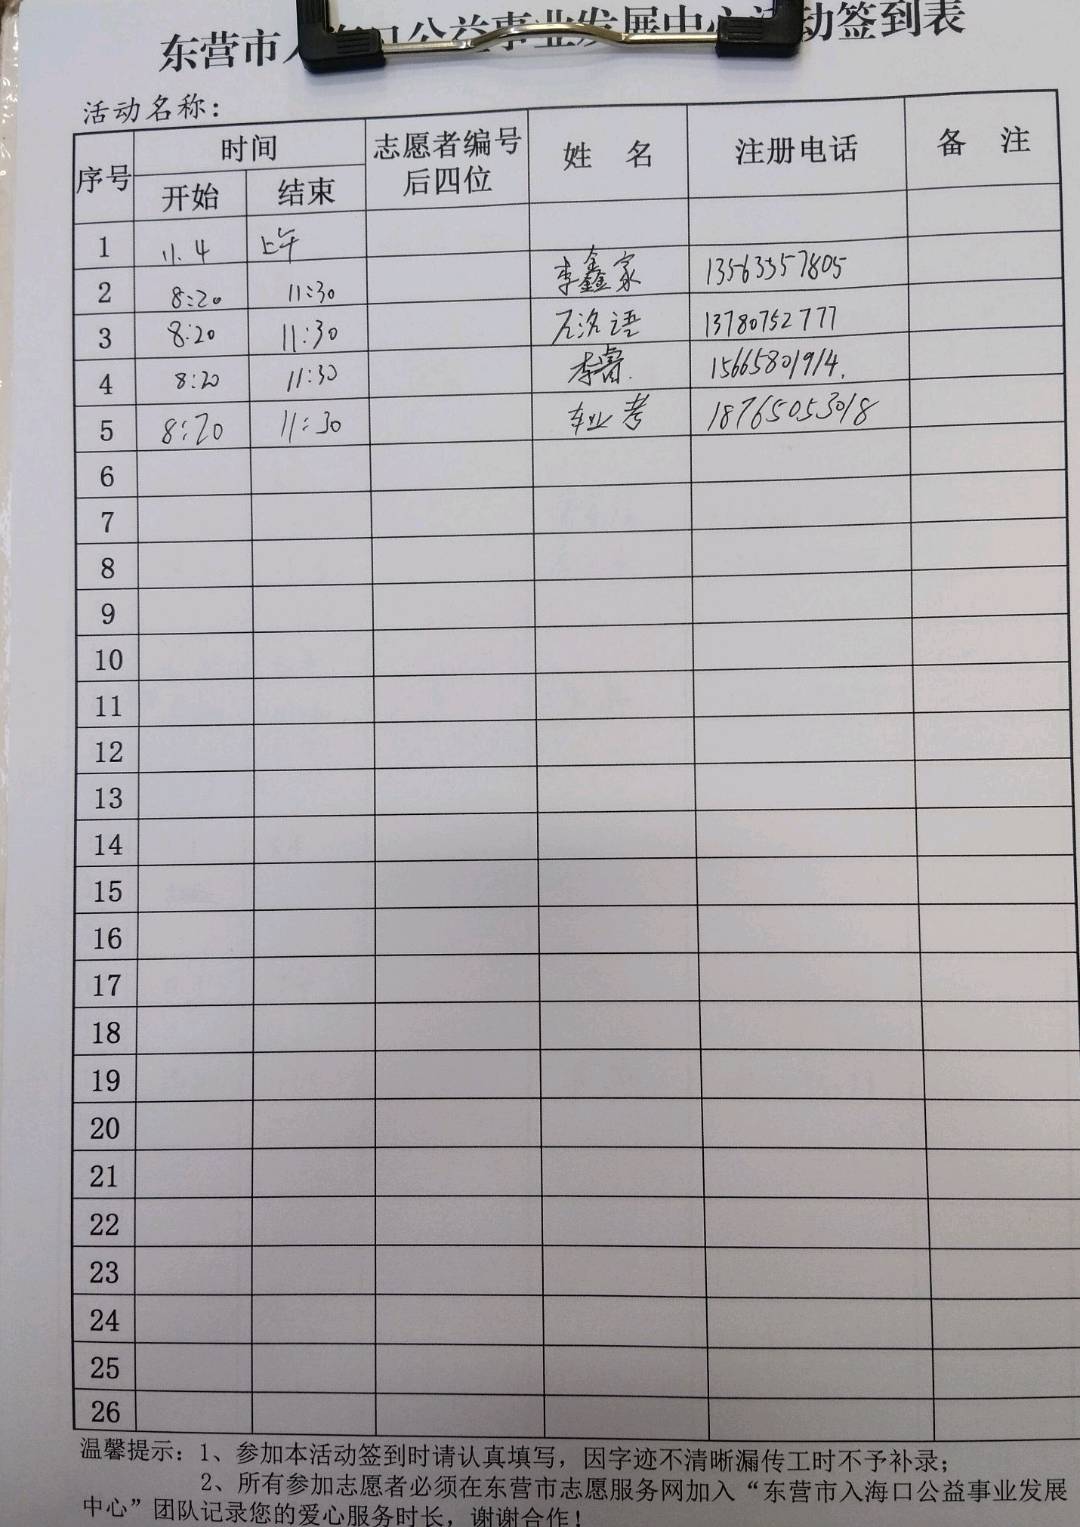 东营市入海口公益事业发展中心活动签到表
活动名称：
序号 时间 志愿者编号后四位 姓 名 注册电话 备 注
开始 结束
1 11.4 上午
2 8:20 11:30 李鑫家 13563357805
3 8:20 11:30 语 13780752777
4 8:20 11:30 李睿. 15665801914.
5 8:20 11:30 18765053018
6
7
8
9
10
11
12
13
14
15
16
17
18
19
20
21
22
23
24
25
26
温馨提示：1、参加本活动签到时请认真填写，因字迹不清晰漏传工时不予补录；
2、所有参加志愿者必须在东营市志愿服务网加入“东营市入海口公益事业发展
中心”团队记录您的爱心服务时长，谢谢合作！